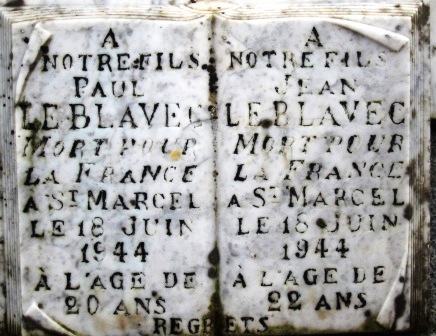 A
NOTRE FILS
PAUL
LE BLAVEC
MORT POUR
LA FRANCE
A ST MARCEL
LE 18 JUIN
1944
À L'AGE DE
20 ANS
A
NOTRE FILS
JEAN
LE BLAVEC
MORT POUR
LA FRANCE
A ST MARCEL
LE 18 JUIN
1944
À L'AGE DE
22 ANS
REGRETS